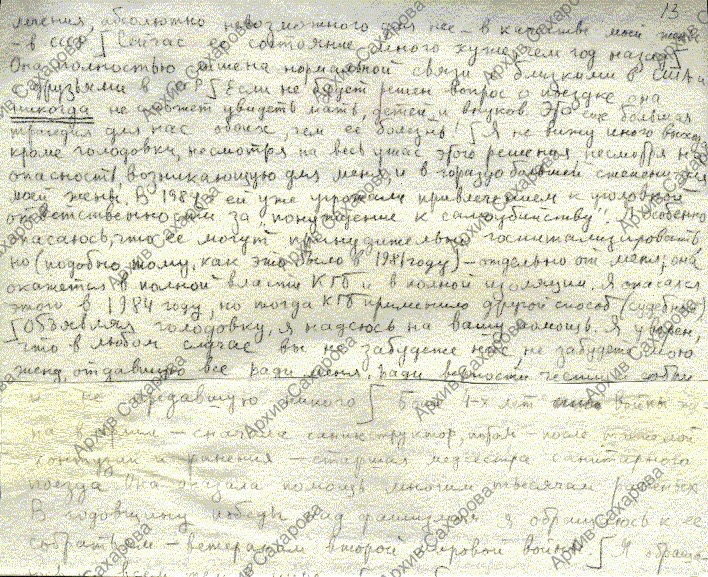 13
мления, абсолютно невозможного для нее – в качестве моей жены
– в СССР [ Сейчас ее состояние много хуже, чем год назад ]
Она полностью лишена нормальной связи с близкими в США и
друзьями в СССР [ Если не будет решен вопрос о поездке она
никогда не сможет увидеть мать, детей и внуков. Это еще большая
трагедия для нас обоих, чем ее болезнь! [ Я не вижу иного выхода
кроме голодовки, несмотря на весь ужас этого решения, несмотря на
опасность, возникающую для меня и в гораздо большей степени для
моей жены. В 1984 г ей уже угрожали привлечением к уголовной
ответственности за "понуждение к самоубийству". Я особенно
опасаюсь, что ее могут принудительно госпитализировать,
но (подобно тому, как это было в 1981 году) – отдельно от меня; она
окажется в полной власти КГБ и в полной изоляции. Я опасался
этого в 1984 году, но тогда КГБ применило другой способ (судебный)
[ Объявляя голодовку, я надеюсь на вашу помощь. Я уверен,
что в любом случае вы не забудете нас, не забудете мою
жену, отдавшую все ради меня, ради верности, чести
и не предавшую никого [ 4-х лет войны
на фронте – сначала санинструктор, потом – после тяжелой
контузии и ранения – старшая медсестра санитарного
поезда Она оказала помощь многим тысячам раненых
В годовщину победы над фашизмом я обращаюсь к ее
собратьям – ветеранам второй мировой войны [ Я обраща-
Архив Сахарова